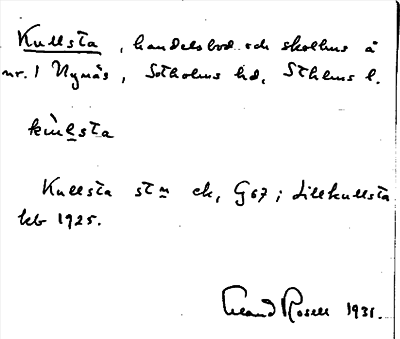 Kullsta, handelsbod och skolhus å
nr. 1 Nynäs, Sotholms hd, Sthlms l.
kùlsta
Kullsta stm ek, G67; Lillkullsta
kb 1925.
Erland Rosell 1931.